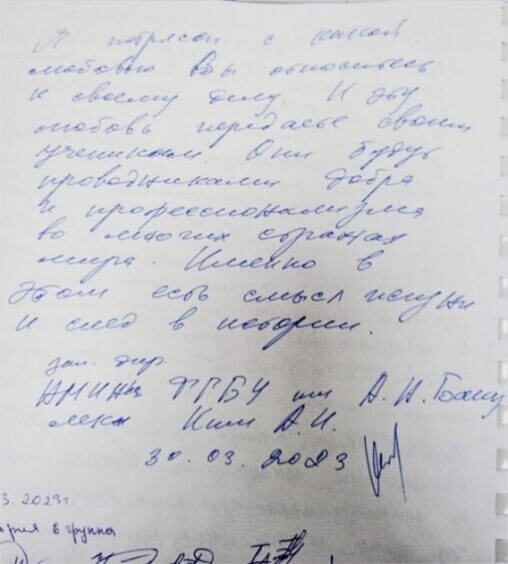 Я потрясен с какой
любовью Вы относитесь
к своему делу. И эту
любовь передаете своим
ученикам. Они будут
проводниками добра
и профессионализма
во многих странах
мира. Именно в
этом есть смысл жизни
и след в истории.
зам. дир.
ФГБУ им А. Н.
Ким А.И.
30.03.2023
3. 2023г.
в группа